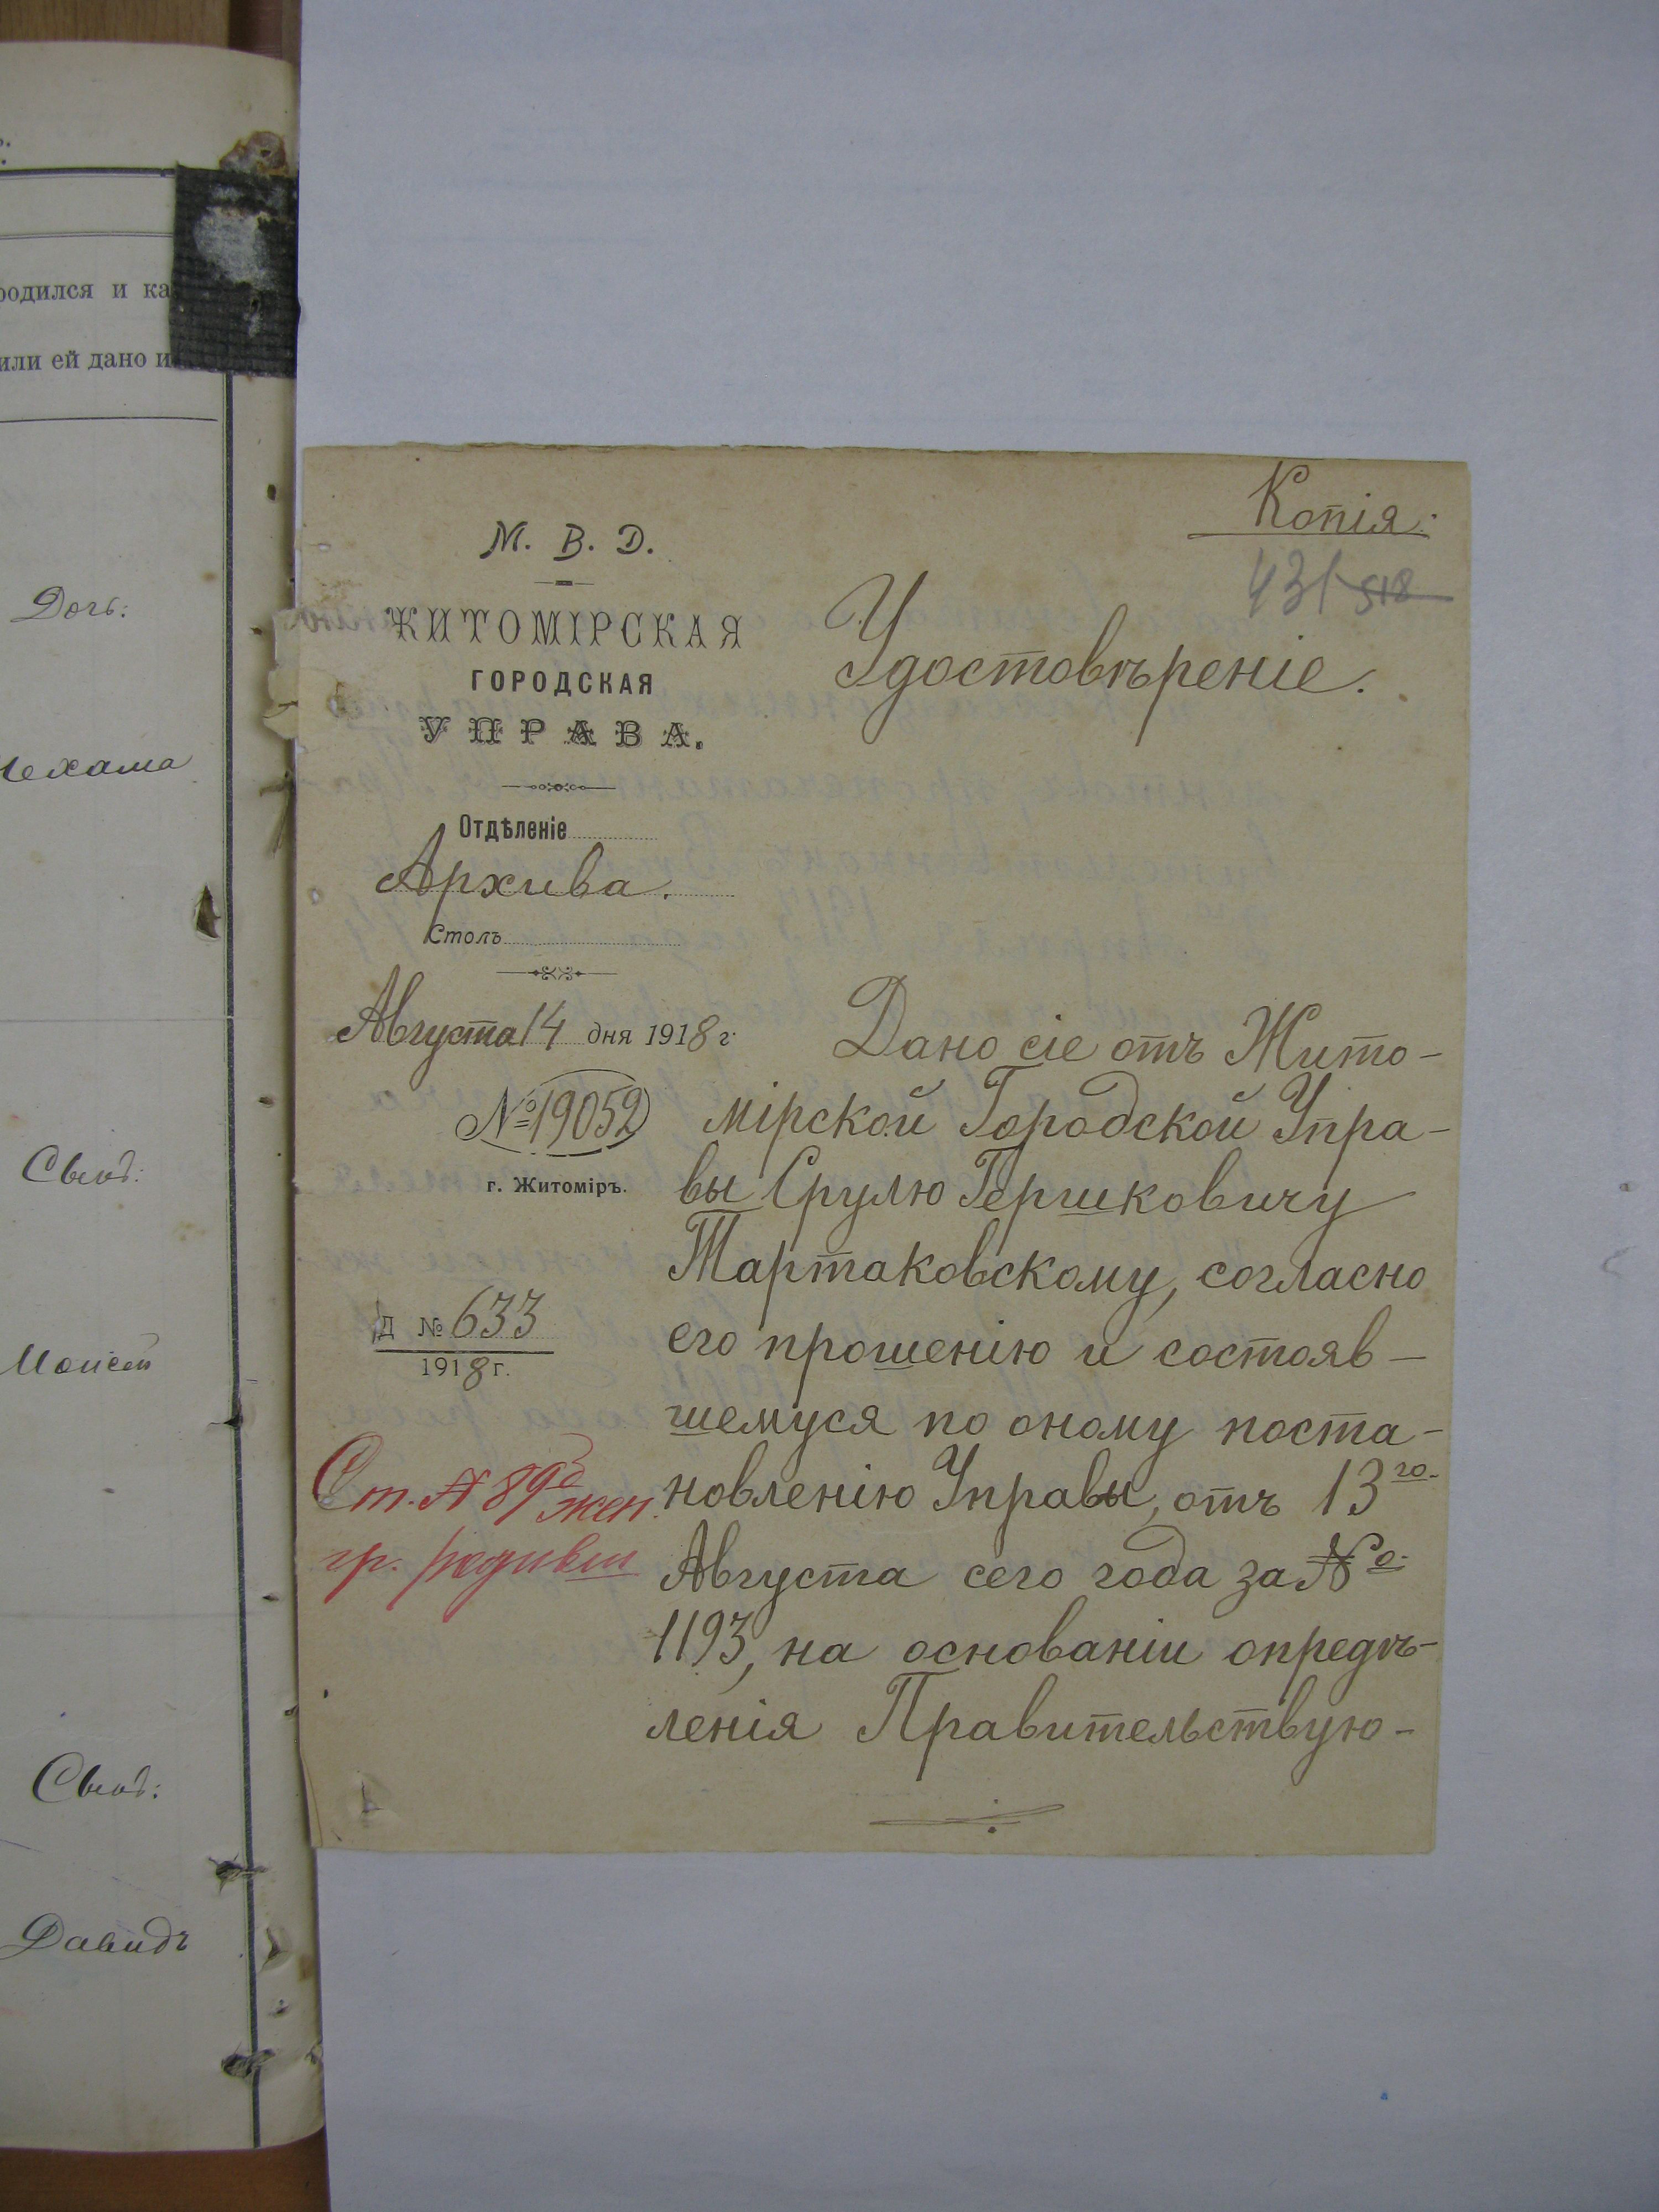 родился и ка
или ей дано и
Дочь:
Нехама
Сынъ:
Моисей
Сынъ:
Давидъ
Копія.
431 518
М. В. Д.
ЖИТОМІРСКАЯ
ГОРОДСКАЯ
УПРАВА.
Отдѣленіе
Архива.
Столъ
Августа 14 дня 1918 г.
№ 19052
г. Житоміръ.
Д № 633
1918 г.
Ст. № 89 жен.
гр. родивш
Удостовѣреніе.
Дано сіе отъ Жито-
мірской Городской Упра-
вы Срулю Гершковичу
Тартаковскому, согласно
его прошенію и состояв-
шемуся по оному поста-
новленію Управы, отъ 13го
Августа сего года за №
1193, на основаніи опредѣ-
ленія Правительствую-